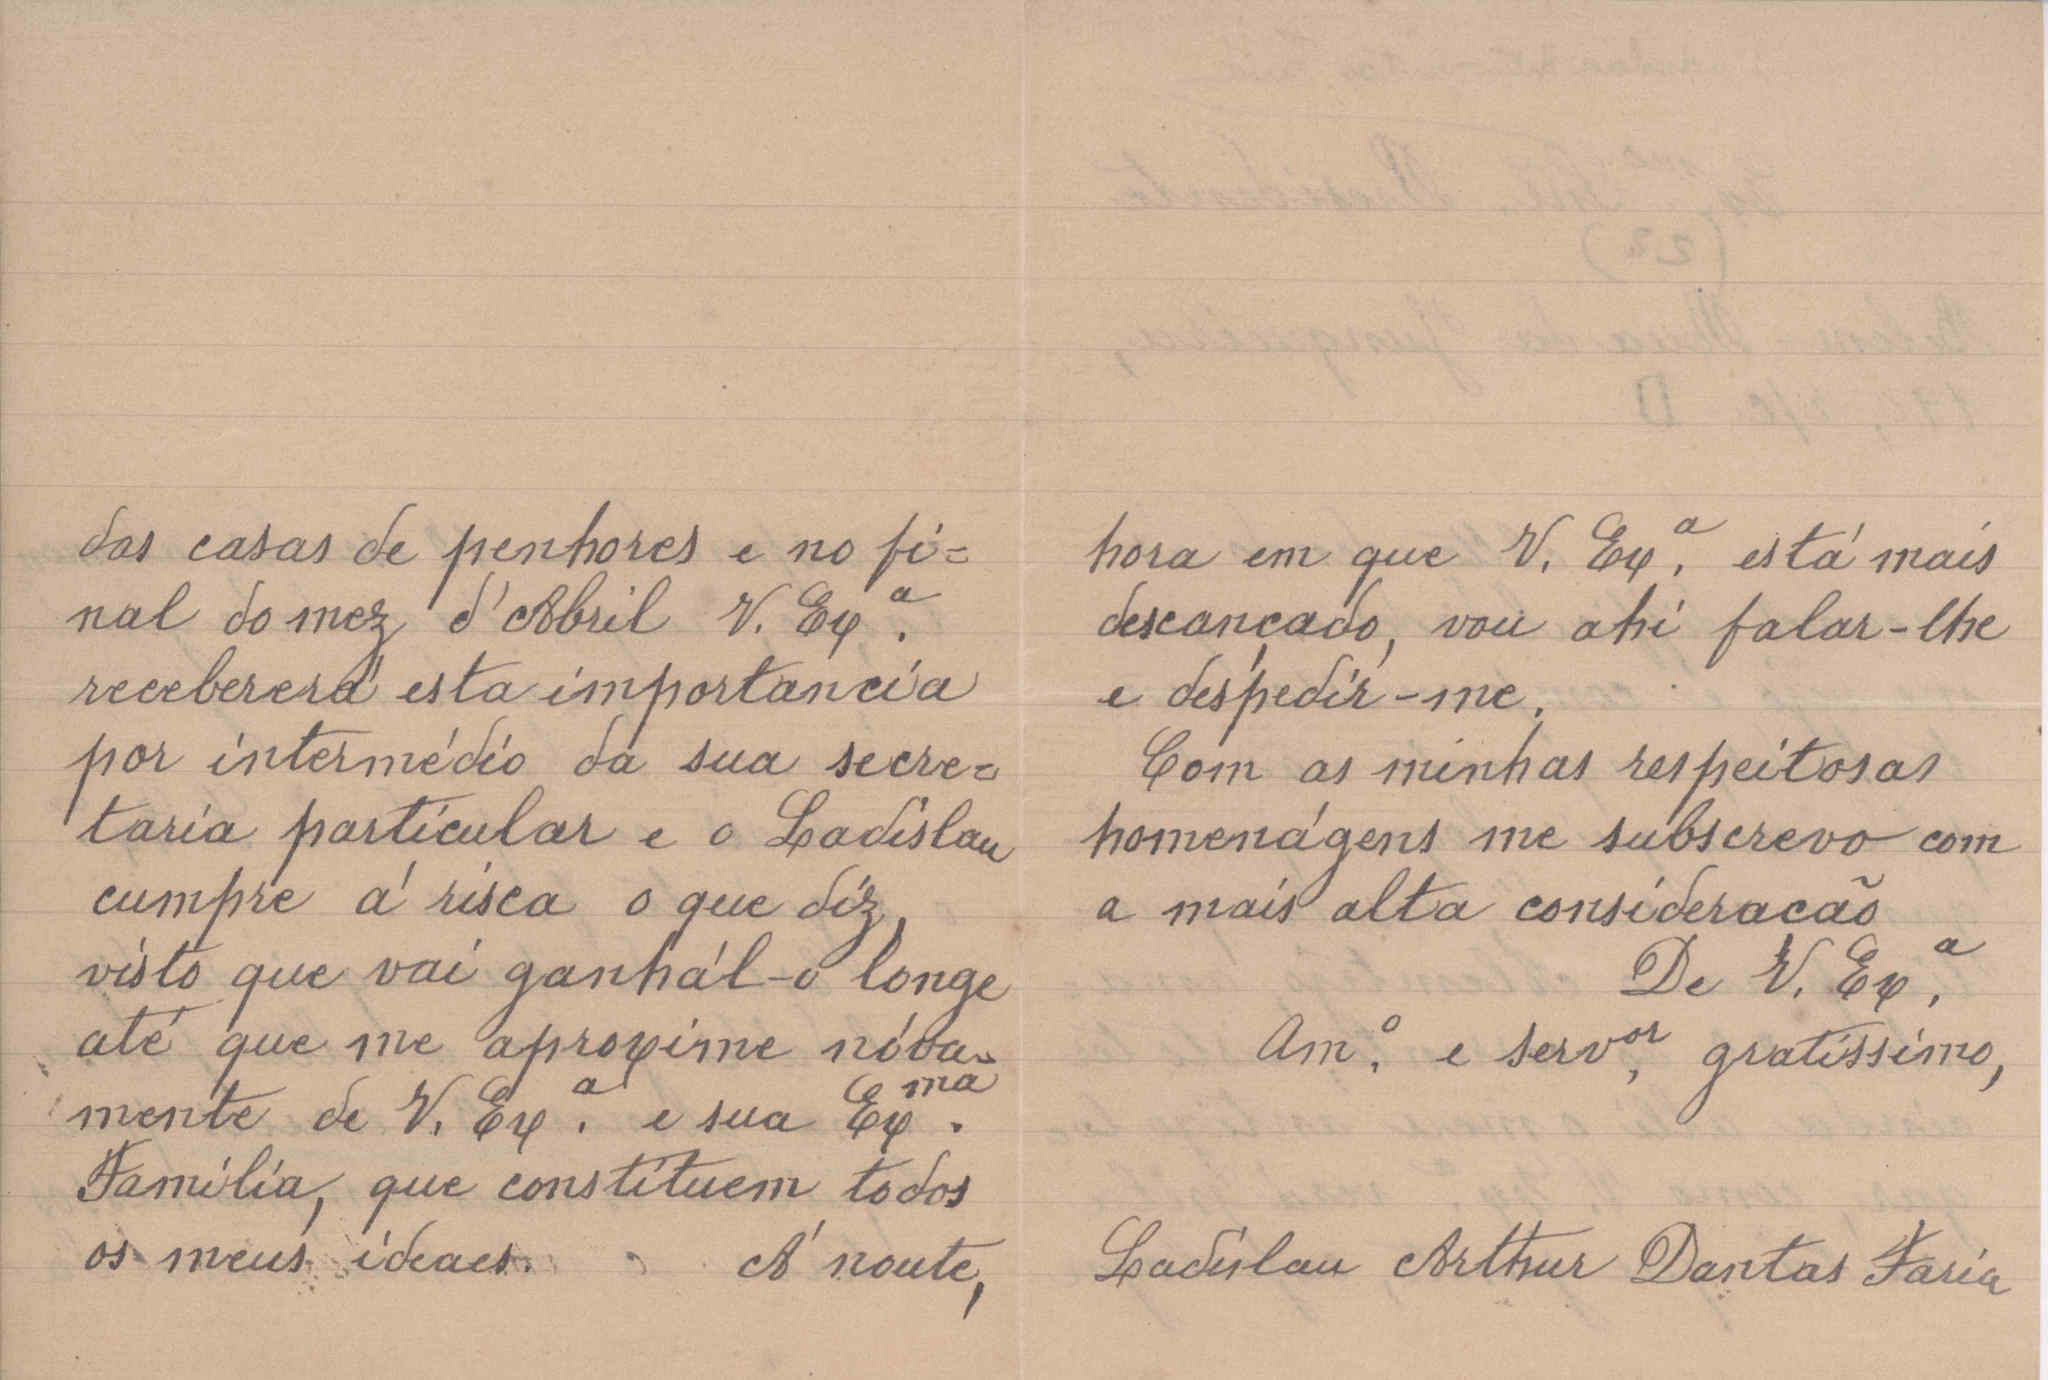 das casas de penhores e no fi=
nal do mez d'Abril V. Exª.
recebererá esta importancia
por intermédio da sua secre=
taria particular e o Ladislau
cumpre á risca o que diz,
visto que vai ganhál-o longe
até que me aproxime nóva-
mente de V. Exª. e sua Exma.
Familia, que constituem todos
os meus ideaes. Á noute,
hora em que V. Exª. está mais
descançado, vou ahi falar-lhe
e despedir-me.
Com as minhas respeitosas
homenágens me subscrevo com
a mais alta consideracão
De V. Exª.
Amº. e servor, gratissimo,
Ladislau Arthur Dantas Faria